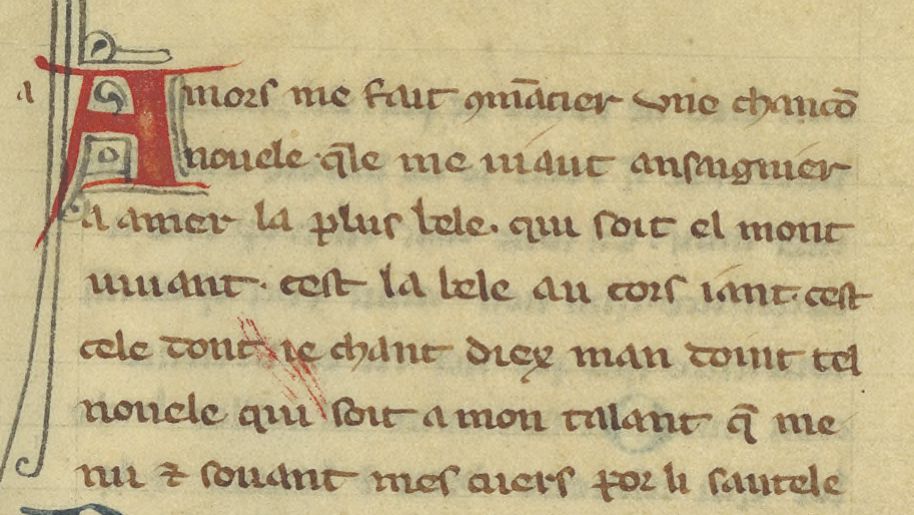 a Amors me fait ꝯmācier vne chancō
nouele· q̄le me uiaut ansaignier
a amer la plus bele· qui soit el mont
uiuant· cest la bele au cors iant· cest
cele dont ie chant diex man doint tel
nouele qui soit a mon talant q̄ me
nu ⁊ souant mes cuers por li sautele